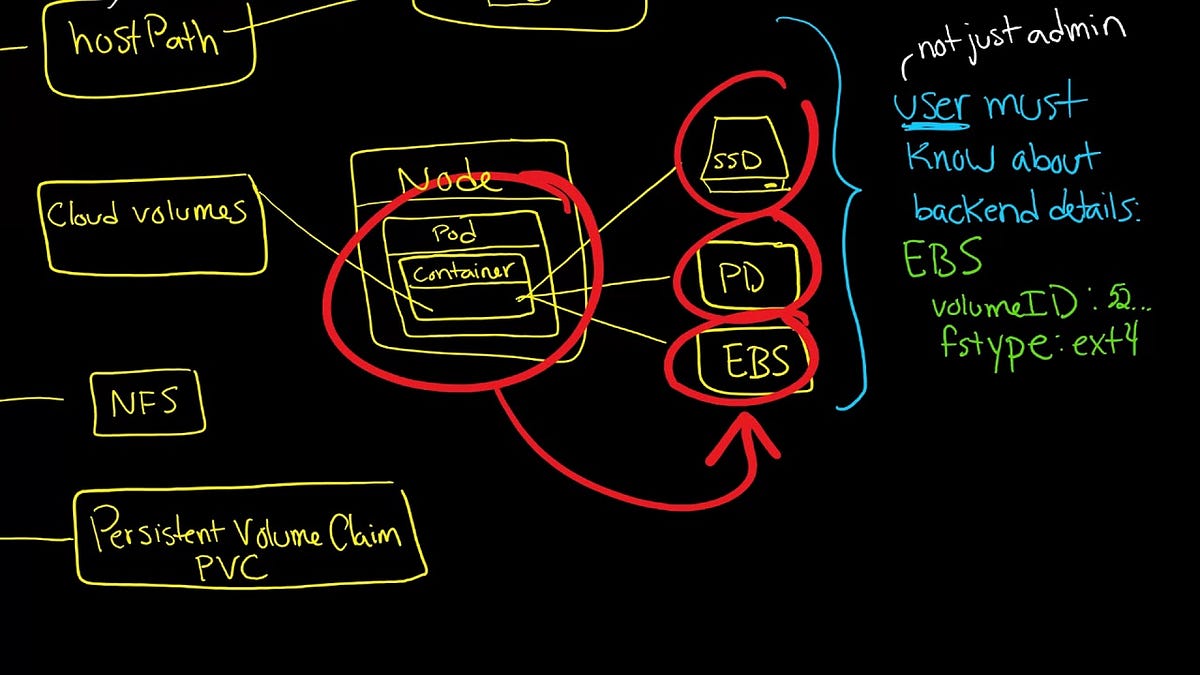 hostPath
Cloud volumes
NFS
Persistent Volume Claim
PVC
Node
Pod
Container
SSD
PD
EBS
not just admin
user must
know about
backend details:
EBS
volumeID: 52...
fstype: ext4